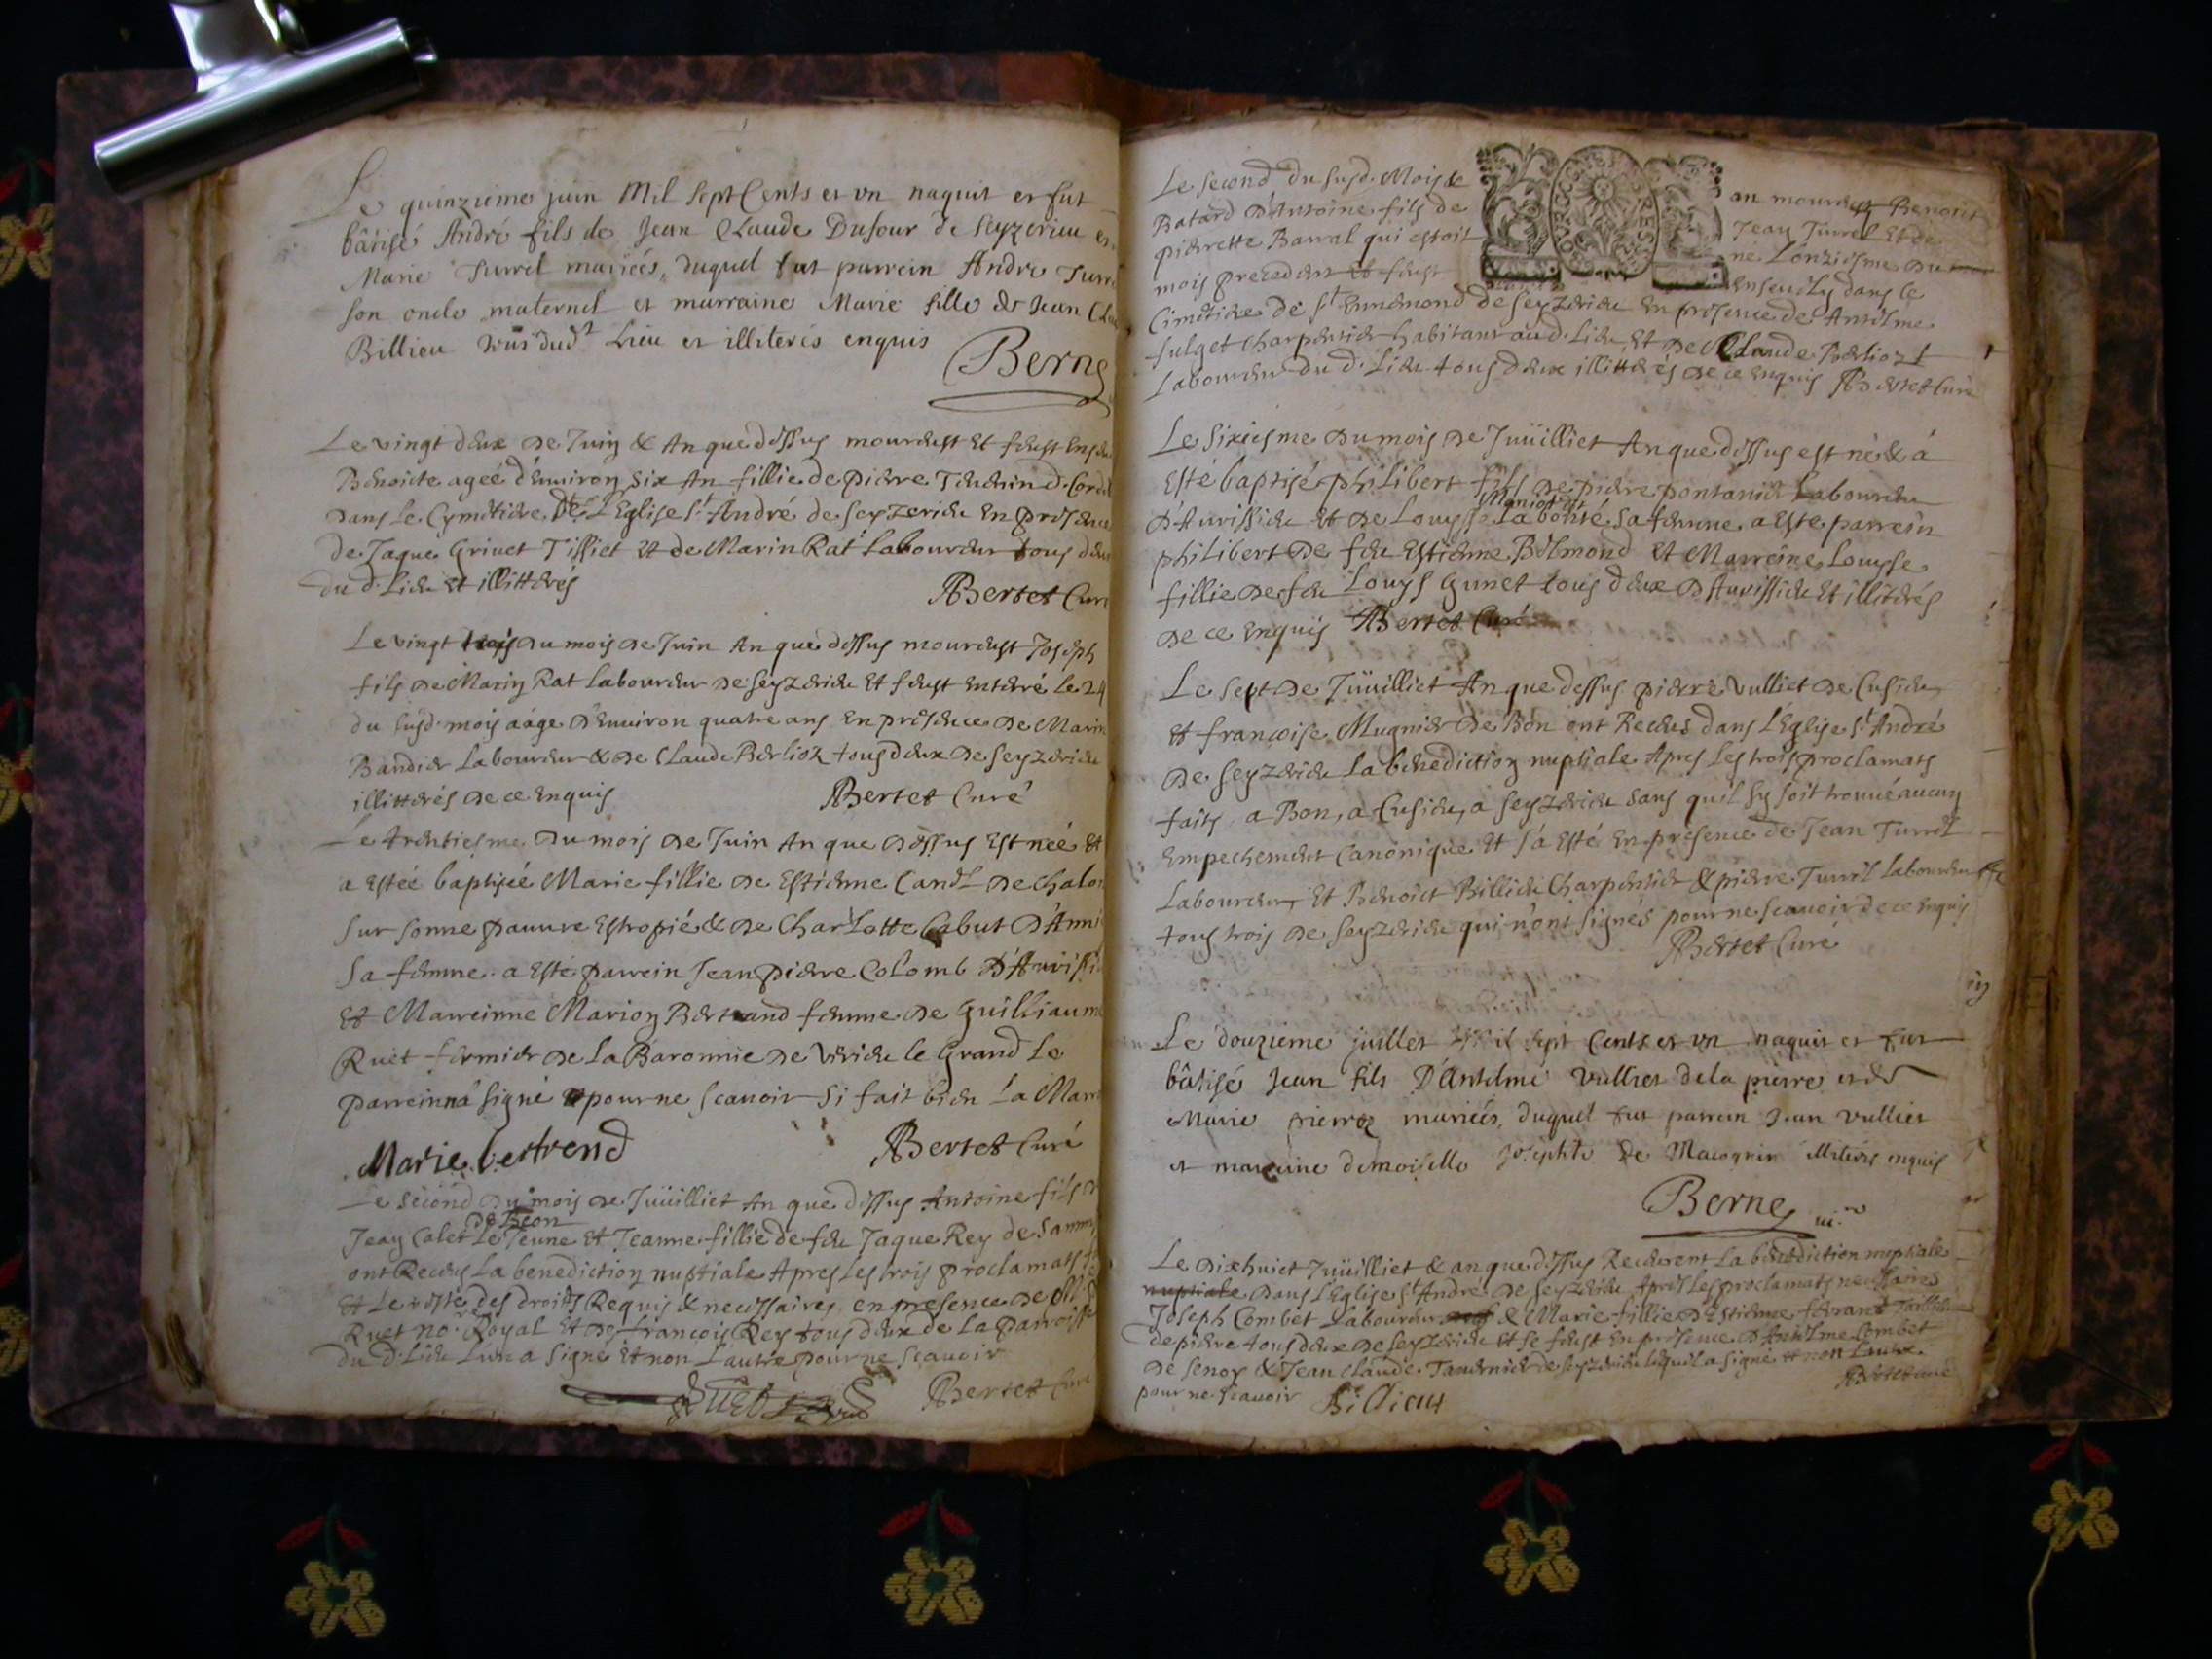 Le quinzieme juin Mil sept Cents et vn naquit et fut
bâtisé André fils de Jean Claude Dufour de seyzerieu et
Marie Turrel mariéés, duquel fut parrein Andre Turre
son oncle maternel et marraine Marie fille de Jean Clau
Billieu tous dudt Lieu et illiterés enquis
Berne
Le vingt deux de Juin & An que dessus mourust et feust Ense
Benoicte ageé d'enuiron six An fillie de pierre
dans Le Cymetiere de L'Eglise St André de seyzerieu en presence
de Jaque Griuet Tissiet et de Marin Rat Laboureur tous deux
du d. Lieu et illitterés
Bertet Curé
Le vingt trois du mois de Juin An que dessus mourust Joseph
fils de Marin Rat Laboureur de seyzerieu et feust enterré le 24
du susd. mois aage d'enuiron quatre ans en presence de Marin
Bandier Laboureur & de Claude Berlioz tous deux de seyzerieu
illitterés de ce enquis
Bertet Curé
Le trentiesme du mois de Juin An que dessus Est neé et
a Esteé baptiseé Marie fillie de Estienne de chalon
sur sonne pauure Estropié & de Charlotte Cabut
sa femme. a Esté parrein Jean pierre Colomb d'Auissie
et Marreinne Marion Bertrand femme de Guilliaume
Ruet fermier de La Baronnie de Virieu le Grand Le
parrein n'a signé pour ne scauoir si fait bien La Marr
Marie bertrend
Bertet Curé
Le second du mois de Juüilliet An que dessus Antoine fils d
de Beon
Jean Calet Le Jeune et Jeanne fillie de feu Jaque Rey de
ont Receus La benediction nuptiale Apres Les trois proclamats
et Le reste des droits Requis & necessaires, en presence de
Ruet no.re Royal et de francois Rey tous deux de La parroisse
du d. Lieu L'un a signé et non L'autre pour ne scauoir
Ruet
Bertet Curé
Le second du susd. Mois & an mourust Benoict
Batard d'Antoine fils de Jean Turrel et de
pierrette Barral qui estoit né L'onziesme du
mois precedent et feust Enseuely dans le
Cimetiere de St Ennemond de seyzerieu en presence de Antelme
fulget charpentier habitant aud. Lieu, et de Claude Berlioz
Laboureur du d. Lieu tous deux illitterés de ce enquis Bertet Curé
Le sixiesme du mois de Juüilliet An que dessus est né & à
esté baptisé philibert fils de pierre pontanier Laboureur
d'Auissieu et de Louysse La bonté sa femme a Esté parrein
philibert de feu Estienne Belmond et Marreine Louysse
fillie de feu Louys Gunet tous deux d'Auissieu et illiterés
de ce enquis Bertet Curé
Le sept de Juüilliet An que dessus pierre Vulliet de Cusieu
et francoise Mugnier de Bon ont Receus dans L'Eglise St André
de seyzerieu La benediction nuptiale Apres Les trois proclamats
faits a Bon, a Cusieu, a seyzerieu sans qu'il sy soit trouué aucun
Empechement Canonique et s'a esté en presence de Jean Turrel
Laboureur, et Benoict Billieu Charpentier & pierre Turrel Laboureur
tous trois de seyzerieu qui n'ont signés pour ne scauoir de ce enquis
Bertet Curé
Le douzieme juillet Mil sept Cents et vn naquit et fut
bâtisé Jean fils D'Antelme Vulliet de la pierre et de
Marie pierroz mariéés, duquel fut parrein Jean vulliet
et marreine demoiselle Josephte De Macognin illiterés enquis
Berne vic.re
Le dixhuict Juüilliet & an que dessus Receurent La benediction nuptiale
nuptiale dans L'Eglise St André de seyzerieu, Apres Les proclamats necessaires
Joseph Combet Laboureur & Marie fillie d'Estienne
de pierre tous deux de seyzerieu et se feust en presence d'Antelme Combet
de senoy & Jean Claude Tauernier de seyzerieu Lequel a signé et non L'autre.
pour ne scauoir Billieux
Bertet curé